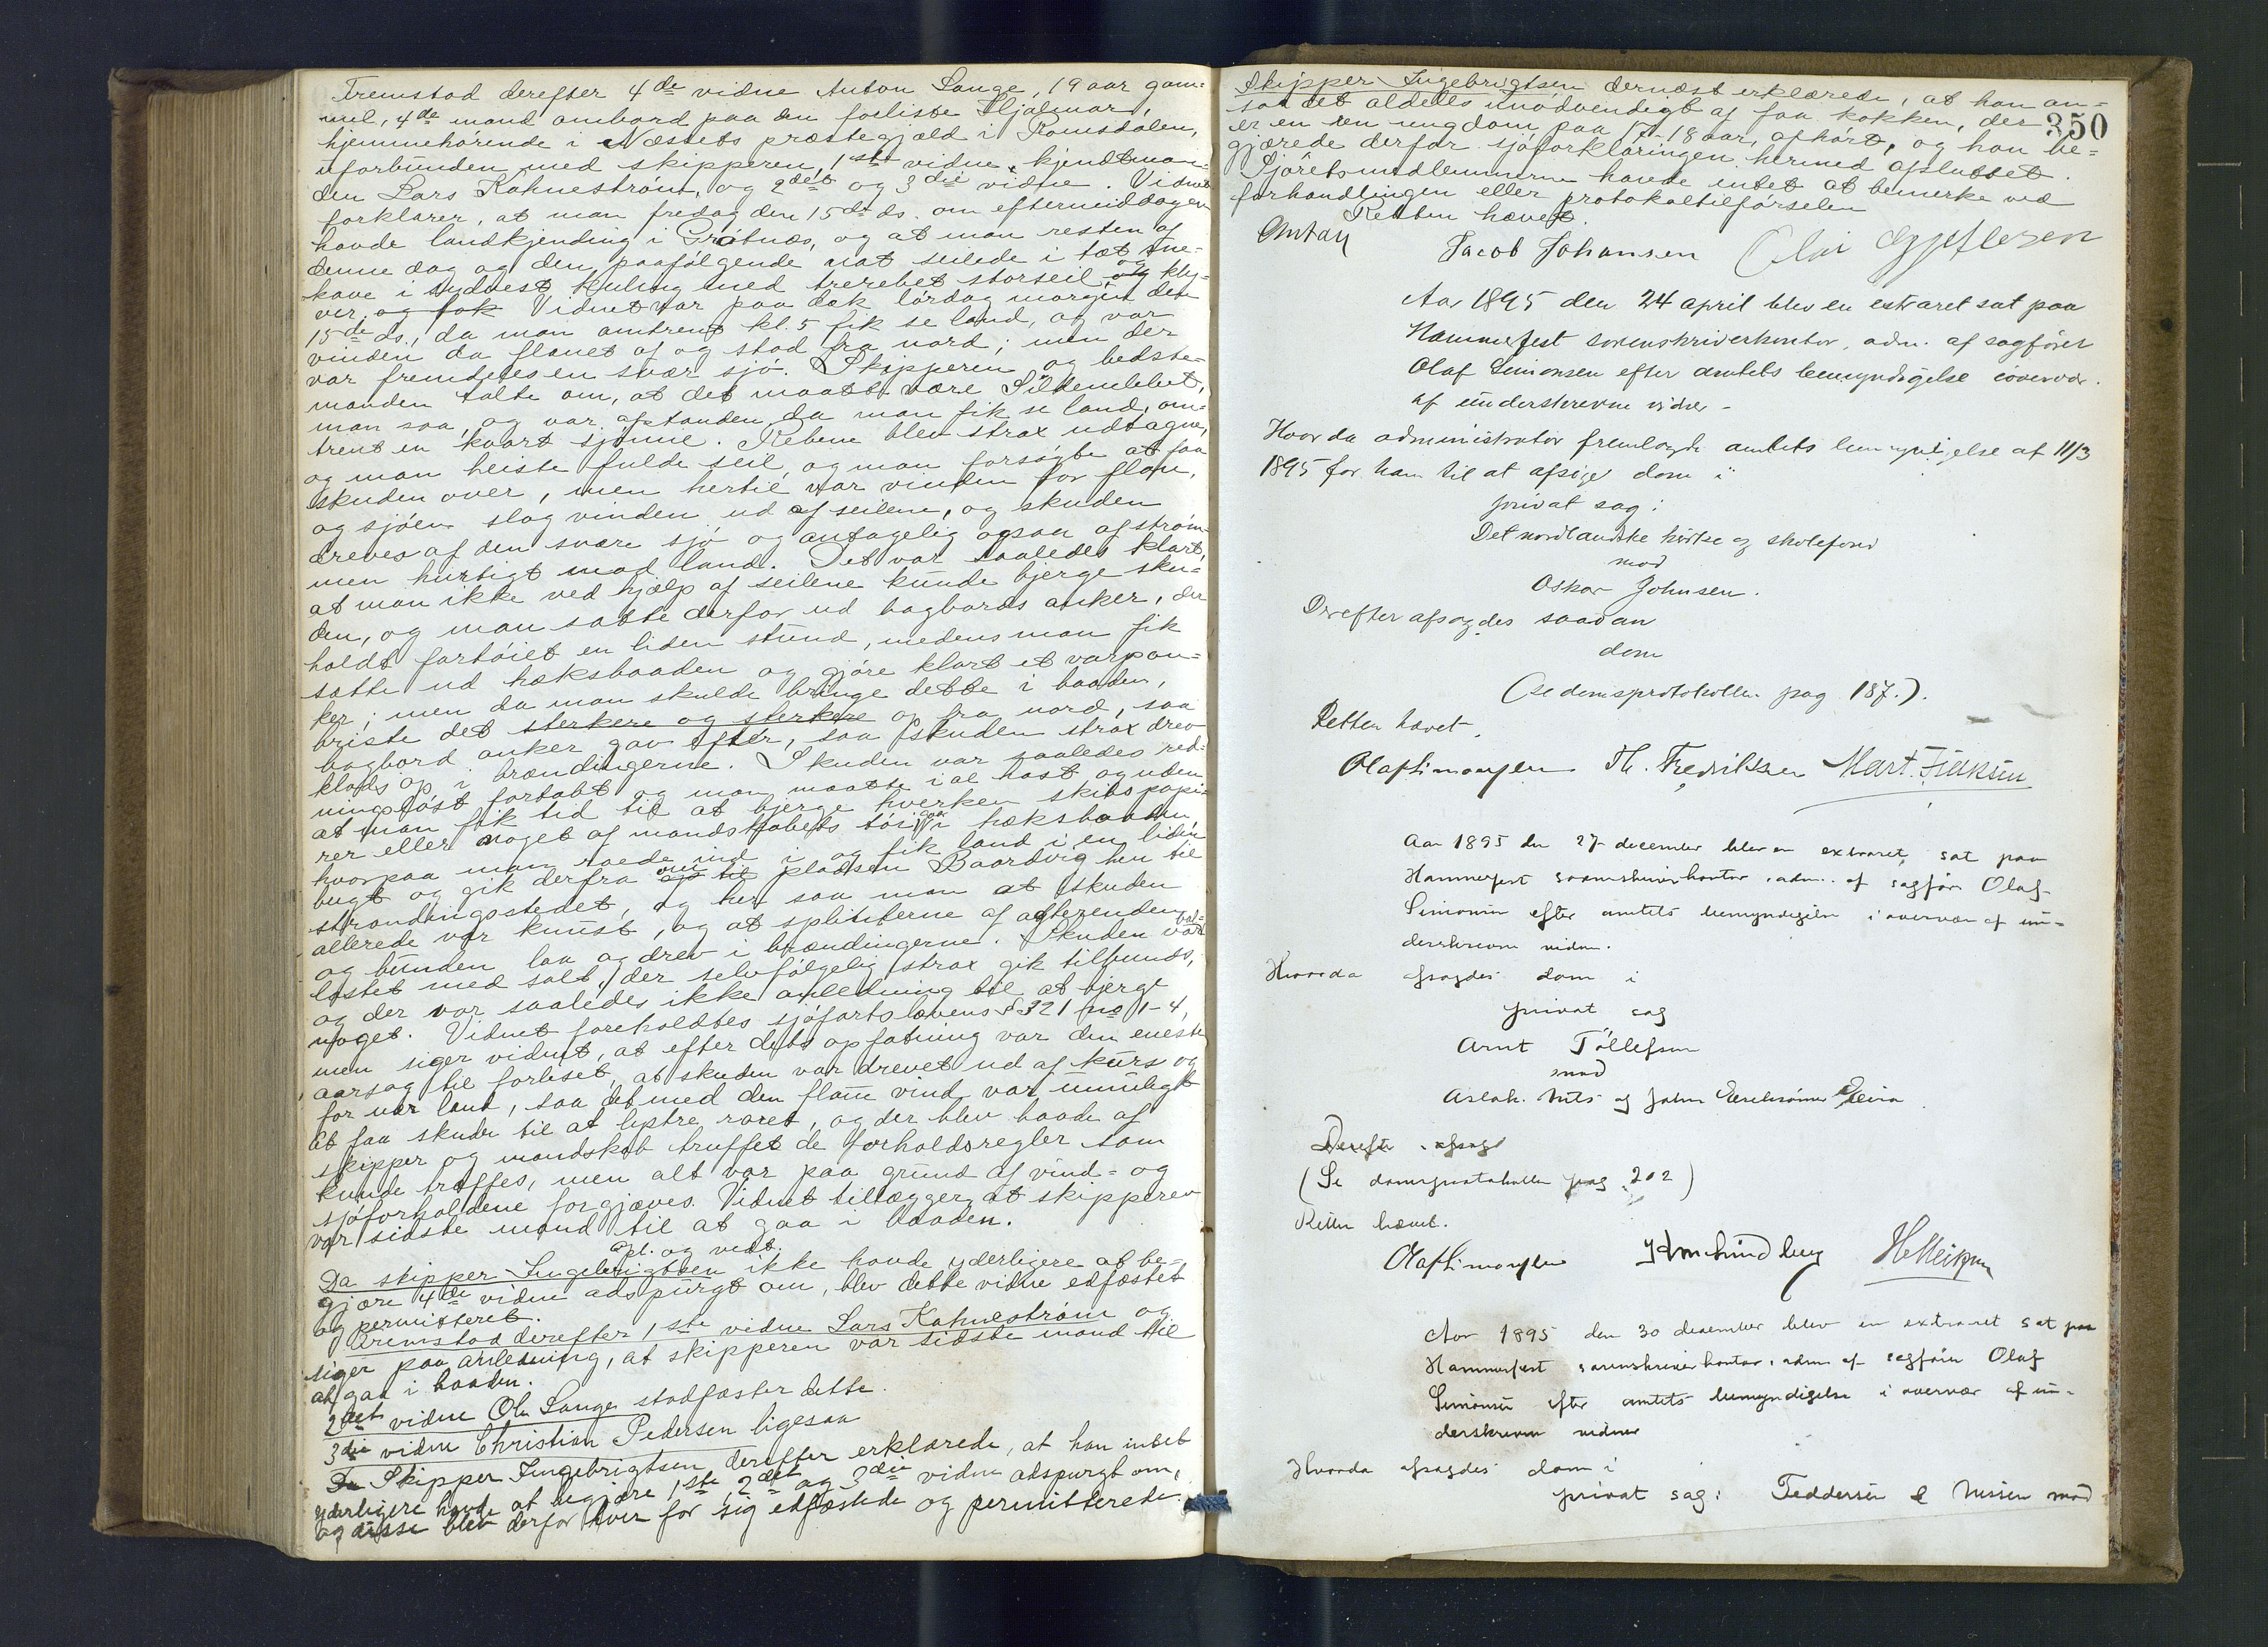 Fremstod derefter 4de vidne Anton Lange, 19 aar gam=
mel, 4de mand ombord paa den forliste Hjalmar,
hjemmehørende i Næssets præstegjæld i Romsdalen,
uforbunden med skipperen, 1ste vidne, kjendtman=
den Lars Kahnestrøm, og 2det og 3die vidne. Vidnet
forklarer, at man fredag den 15de ds. om eftermiddagen
havde landkjending i Grøtnæs, og at man resten af
denne dag og den paafølgende nat seilede i tæt sne=
kave i sydvest kuling med trerebet storseil, og kly=
ver, og fok Vidnet var paa dæk lørdag morgen den
15de ds., da man omtrent kl. 5 fik se land, og var
vinden da flauet af og stod fra nord; men der
var fremdeles en svær sjø. Skipperen og bedste=
manden talte om, at det maatte være Sildemulen,
man saa, og var afstanden, da man fik se land, om=
trent en kvart sjømil. Rebene blev strax udtagne,
og man heiste fulde seil, og man forsøgte at faa
skuden over, men hertil var vinden for flau,
og sjøen slog vinden ud af seilene, og skuden
dreves af den svære sjø og antagelig ogsaa af strøm=
men hurtigt mod land. Det var saaledes klart,
at man ikke ved hjælp af seilene kunde bjerge sku=
den, og man satte derfor ud bagbords anker, der
holdt fartøiet en liden stund, medens man fik
satte ud hæksbaaden og gjøre klart et varpan=
ker; men da man skulde bringe dette i baaden,
briste det sterkere og sterkere op fra nord, saa
bagbord anker gav efter, saa skuden strax drev
klods op i brændingerne. Skuden var saaledes red=
ningsløst fortabt og man maatte i al hast og uden
at man fik tid til at bjerge hverken skibspapi=
rer eller noget af mandskabets tøi gaa i hæksbaaden,
hvorpaa man roede ind i og fik land i en liden
bugt og gik derfra over til pladsen Baardvig hen til
strandingsstedet, og her saa man at skuden
allerede var knust, og at splinterne af agterenden
og bunden laa og drev i brændingerne. Skuden var bal=
lastet med salt, der selvfølgelig strax gik tilbunds,
og der var saaledes ikke anledning til at bjerge
noget. Vidnet foreholdtes sjøfartslovens § 321 no 1-4,
men siger vidnet, at efter dets opfatning var den eneste
aarsag til forliset, at skuden var drevet ud af kurs og
for nær land, saa det med den flaue vind var umuligt
at faa skuden til at lystre roret, og der blev baade af
skipper og mandskab truffet de forholdsregler som
kunde træffes, men alt var paa grund af vind= og
sjøforholdene forgjæves. Vidnet tillægger, at skipperen
var sidste mand til at gaa i baaden.
Opl. og vedt.
Da skipper Ingebrigtsen ikke havde yderligere at be=
gjære 4de vidne adspurgt om, blev dette vidne edfæstet
og permitteret.
Fremstod derefter 1ste vidne Lars Kahnestrøm og
siger paa anledning, at skipperen var sidste mand til
at gaa i baaden.
2det vidne Ole Lange stadfæster dette.
3die vidne Christian Pedersen ligesaa
Da Skipper Ingebrigtsen derefter erklærede, at han intet
yderligere havde at begjære 1ste, 2det og 3die vidne adspurgt om,
og disse blev derfor hver for sig edfæstede og permitterede.
Skipper Ingebrigtsen dernæst erklærede, at han an=
saa det aldeles unødvendigt af faa kokken, der
er en ung dom paa 17-18 aar, afhørt, og han be=
350
gjærede derfor sjøforklaringen hermed afsluttet.
Sjøretsmedlemmerne havde intet at bemerke ved
forhandlingen eller protokoltilførselen
Retten hævet.
Jacob Johansen
Aar 1895 den 24 april blev en extraret sat paa
Hammerfest sorenskriverkontor, adm. af sagfører
Olaf Simonsen efter amtets bemyndigelse i overvær.
af underskrevne vidner -
Hvor da administrator fremlagde amtets bemyndigelse af 11/3
1895 for ham til at afsige dom i
privat sag:
Det nordlandske kirke og skolefond
mod
Oskar Johnsen.
Derefter afsagdes saadan
dom
(se domsprotokollen pag 187.).
Retten hævet.
Olaf Simonsen Th. Fredriksen Mart.
Aar 1895 den 27 december blev en extraret sat paa
Hammerfest sorenskriverkontor, adm. af sagfører Olaf
Simonsen efter amtets bemyndigelse i overvær af un=
derskrevne vidner.
Hvorda afsagdes dom i
privat sag
Arnt Tøllefsen
mod
Aslak Nils og John
Derefter afsagt
(Se domsprotokollen pag 202)
Retten hævet.
Olaf Simonsen
Aar 1895 den 30 december blev en extraret sat paa
Hammerfest sorenskriverkontor, adm. af sagfører Olaf
Simonsen efter amtets bemyndigelse i overvær af un=
derskrevne vidner
Hvorda afsagdes dom i
privat sag: Feddersen & Nissen mod